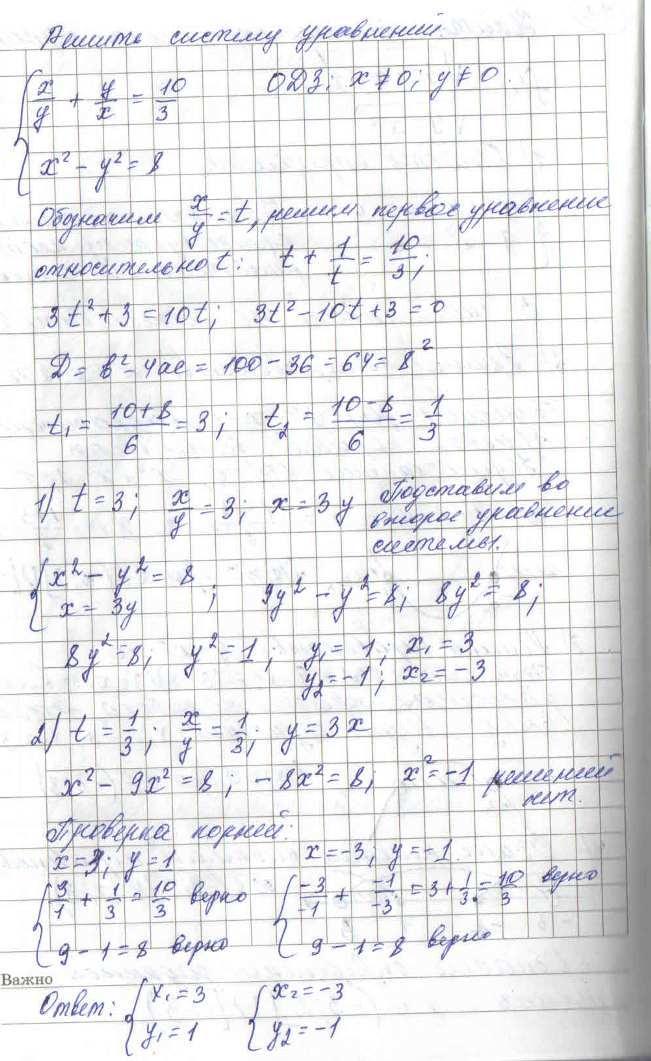 Решить систему уравнений:
x/y + y/x = 10/3 ОДЗ: x ≠ 0; y ≠ 0.
x² − y² = 8
Обозначим x/y = t, решим первое уравнение
относительно t: t + 1/t = 10/3;
3t² + 3 = 10t; 3t² − 10t + 3 = 0
D = b² − 4ac = 100 − 36 = 64 = 8²
t₁ = (10+8)/6 = 3; t₂ = (10−8)/6 = 1/3
1) t = 3; x/y = 3; x = 3y Подставим во
второе уравнение
системы.
x² − y² = 8
x = 3y ; 9y² − y² = 8; 8y² = 8;
8y² = 8; y² = 1; y₁ = 1, x₁ = 3
y₂ = −1; x₂ = −3
2) t = 1/3; x/y = 1/3; y = 3x
x² − 9x² = 8; −8x² = 8, x² = −1 решений
нет.
Проверка корней:
x = 3; y = 1 x = −3; y = −1.
3/1 + 1/3 = 10/3 верно −3/−1 + −1/−3 = 3 + 1/3 = 10/3 верно
9 − 1 = 8 верно 9 − 1 = 8 верно
Важно
Ответ: x₁ = 3 x₂ = −3
y₁ = 1 y₂ = −1